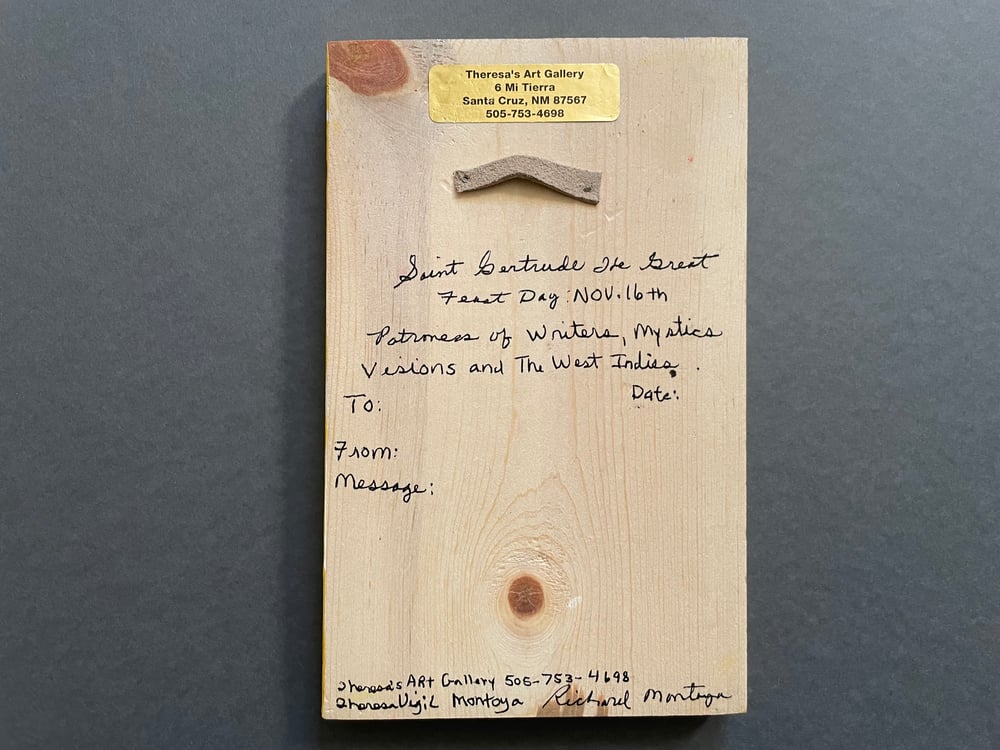 Theresa's Art Gallery
6 Mi Tierra
Santa Cruz, NM 87567
505-753-4698
Saint Gertrude The Great
Feast Day: NOV. 16th
Patroness of Writers, Mystics
Visions and The West Indies.
To: Date:
From:
Message:
Theresa's ART Gallery 505-753-4698
Theresa Vigil Montoya Richard Montoya